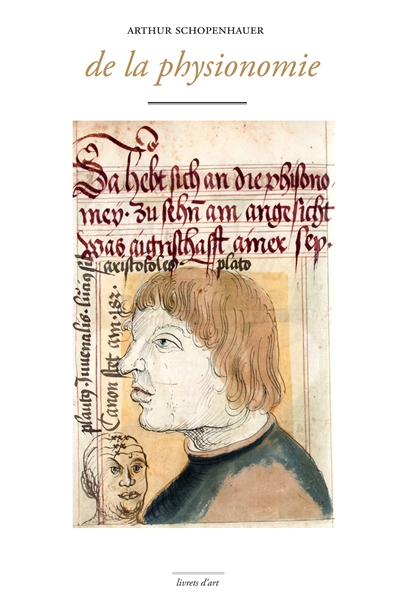 ARTHUR SCHOPENHAUER
de la physionomie
Da hebt sich an die phisono
mey. zu sehn am angesicht
was aigenschafft a mer sey.
aristotoles plato
plauty. Juuenalis.
Canon
livrets d'art